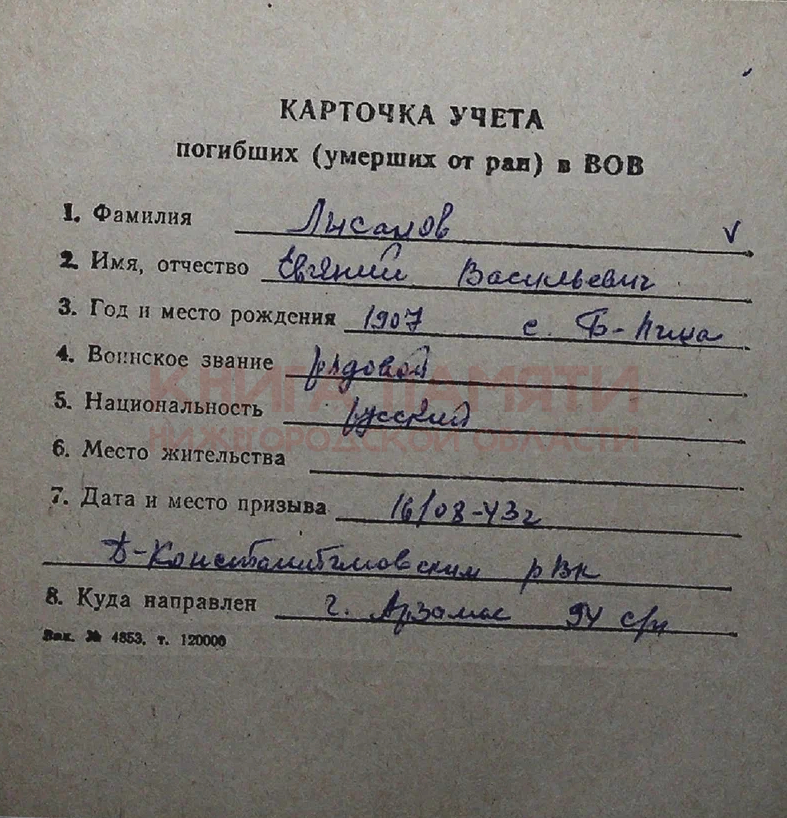 КАРТОЧКА УЧЕТА
погибших (умерших от ран) в ВОВ
1. Фамилия Лысанов
2. Имя, отчество Евгений Васильевич
3. Год и место рождения 1907 с. Б-Пица
4. Воинское звание рядовой
5. Национальность русский
КНИГА ПАМЯТИ
НИЖЕГОРОДСКОЙ ОБЛАСТИ
6. Место жительства
7. Дата и место призыва 16/08-43г
Д-Константиновским рвк
8. Куда направлен г. Арзамас 94
Зак. № 4853, т. 120000